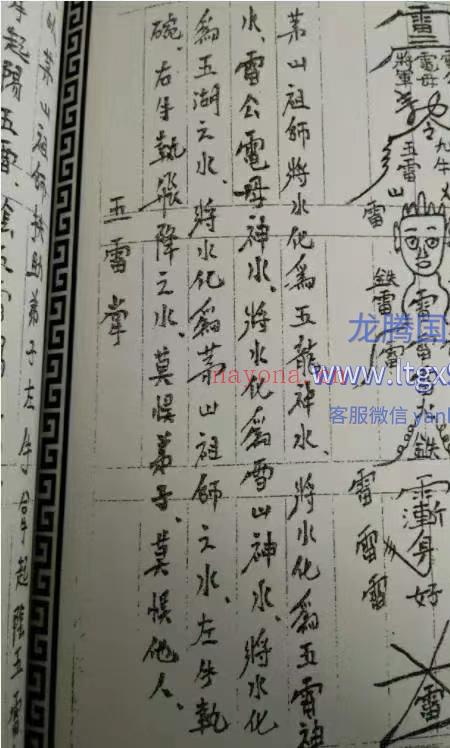 雷
電母
將軍
令
九牛
五雷
山
雷
鉄雷
雷
鉄
漸
身
好
雷
雷
雷
雷
茅山祖師將水化為五龍神水、將水化為五雷神
水、雷公電母神水、將水化為雪山神水、將水化
為五湖之水、將水化為茅山祖師之水、左手執
碗、右手執飛降之水、莫悞弟子、莫悞他人、
五雷掌
茅山祖師扶助弟子左手舉起陰五雷
手起陽五雷、
龙腾国
www.ltgx
nayona.cn
客服微信 yan